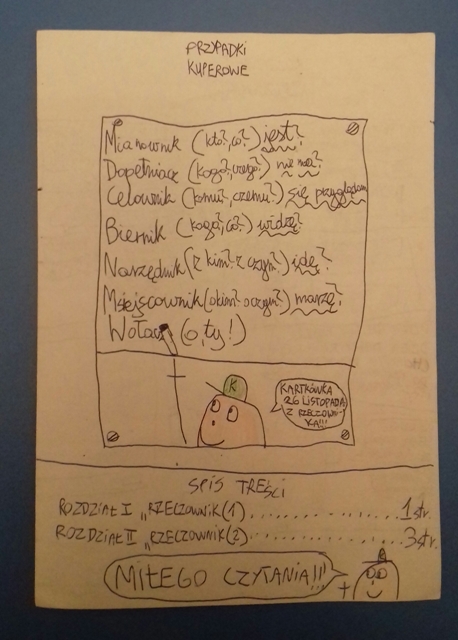 PRZYPADKI
KUPEROWE
Mianownik (kto?, co?) jest?
Dopełniacz (kogo?, czego?) nie ma?
Celownik (komu?, czemu?) się przyglądam
Biernik (kogo?, co?) widzę?
Narzędnik (z kim? z czym?) idę?
Miejscownik (o kim? o czym?) marzę?
Wołacz (o, ty!)
K
KARTKÓWKA
26 LISTOPADA
Z RZECZOWNI-
KA!!!
SPIS TREŚCI
ROZDZIAŁ I „RZECZOWNIK(1).................1 str.
ROZDZIAŁ II „RZECZOWNIK(2).................3 str.
MIŁEGO CZYTANIA!!!